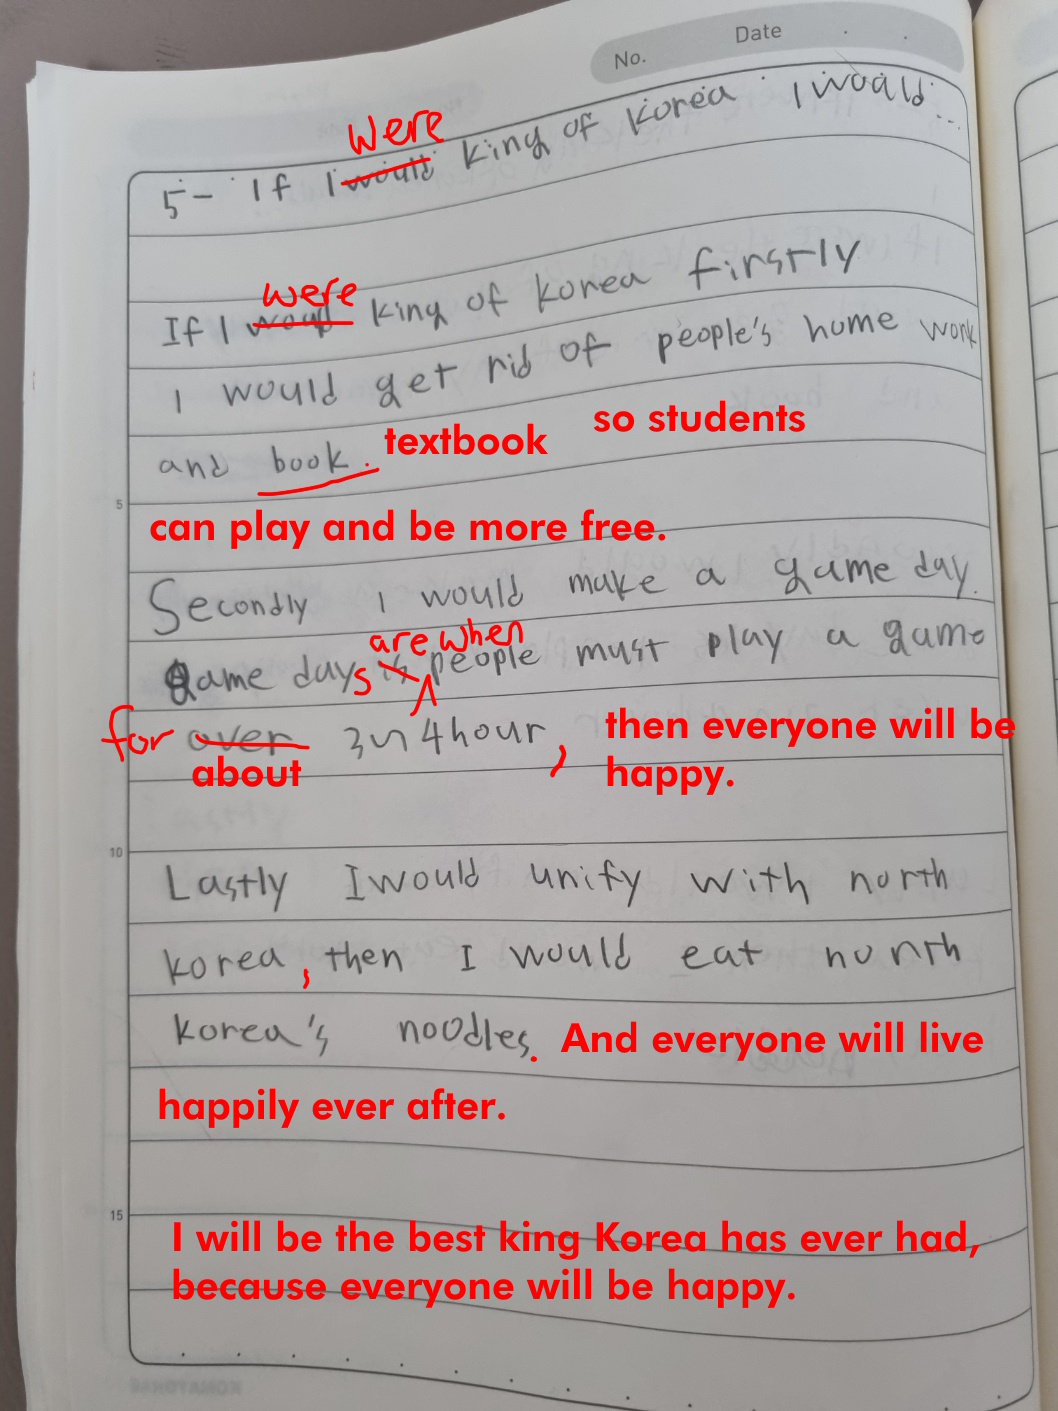 No. Date
were
5- If I would king of korea I would...
were
If I woud king of korea firstly
I would get rid of people's home work
and book. textbook so students
can play and be more free.
Secondly I would make a game day.
are when
game days is people must play a game
for over 3~4hour, then everyone will be
about happy.
Lastly I would unify with north
korea, then I would eat north
korea's noodles. And everyone will live
happily ever after.
I will be the best king Korea has ever had,
because everyone will be happy.
5
10
15